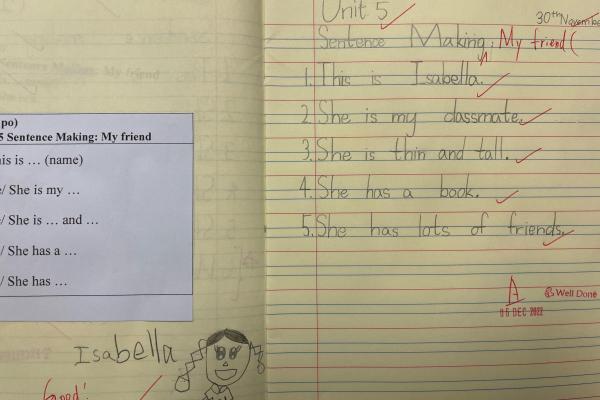 po)
5 Sentence Making: My friend
is is … (name)
/ She is my …
/ She is … and …
/ She has a …
/ She has …
Isabella
Good!
Unit 5
30th November
Sentence Making: My friend (
1. This is Isabella.
2. She is my classmate.
3. She is thin and tall.
4. She has a book.
5. She has lots of friends.
A
Well Done
05 DEC 2022